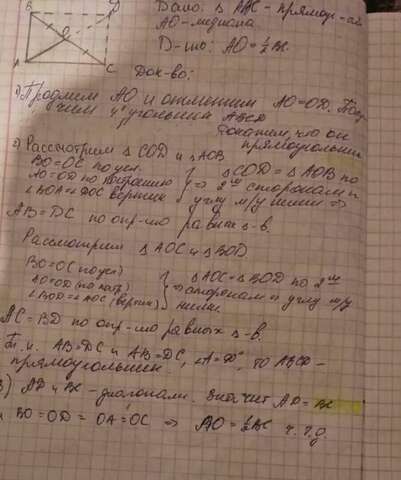 В
D
О
А
С
Дано: Δ АВС - прямоуг-ый
АО - медиана.
D-ть: АО = ½ ВС
Док-во:
1) Продлим АО и отметим АО = OD. Полу-
чим 4-угольник АВCD
докажем, что он
прямоугольник
2) Рассмотрим Δ COD и ΔAOB
ВО = ОС по усл.
АО = OD по построению
∠BOA = ∠DOC вертик
⇒ ΔCOD = ΔAOB по
2ум сторонам и
углу м/у ними ⇒
AB = DC по опр-ю равных Δ-в.
Рассмотрим Δ AOC и ΔBOD
BO = OC по усл
AO = OD (по постр)
∠BOD = ∠AOC (вертик)
⇒ ΔAOC = ΔBOD по 2ум
сторонам и углу м/у
ними.
AC = BD по опр-ю равных Δ-в.
Т.к. AB = DC и AB = DC, ∠A = 90°, то ABCD -
прямоугольник.
3) AD и BC - диагонали. Значит AD = BC
и BO = OD = OA = OC ⇒ AO = ½ BC ч.т.д.